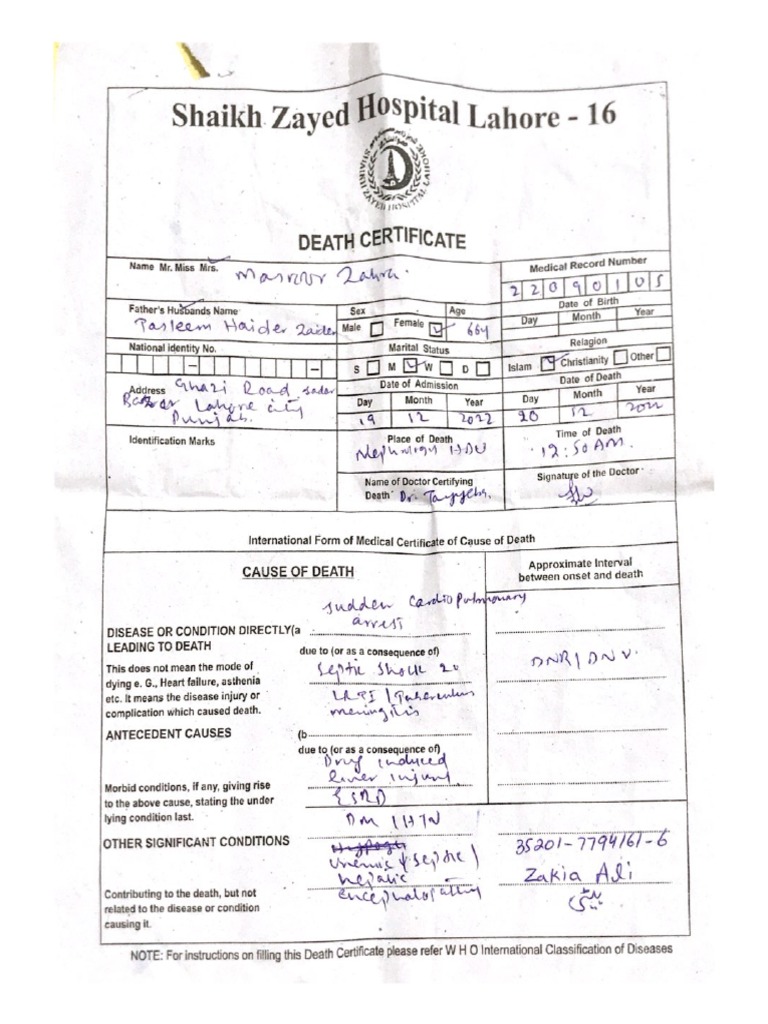 Shaikh Zayed Hospital Lahore - 16
SHAIKH ZAYED HOSPITAL LAHORE
DEATH CERTIFICATE
Name Mr. Miss Mrs. Masroor Zahra.
Medical Record Number
22090105
Father's Husbands Name
Tasleem Haider Zaidi
Sex
Male Female
Age
66y
Date of Birth
Day Month Year
National identity No.
Marital Status
S M W D
Relagion
Islam Christianity Other
Address Ghazi Road Sadar
Bazar Lahore city
Punjab.
Date of Admission
Day Month Year
19 12 2022
Date of Death
Day Month Year
20 12 2022
Identification Marks
Place of Death
Nephrology HDU
Time of Death
12:50 AM.
Name of Doctor Certifying
Death Dr.
Signature of the Doctor
International Form of Medical Certificate of Cause of Death
CAUSE OF DEATH
Approximate Interval
between onset and death
sudden cardiopulmonary
arrest
DISEASE OR CONDITION DIRECTLY(a
LEADING TO DEATH
due to (or as a consequence of)
This does not mean the mode of
dying e. G., Heart failure, asthenia
etc. It means the disease injury or
complication which caused death.
Septic shock 20
LRTI / Tuberculus
meningitis
DNR / DNV.
ANTECEDENT CAUSES
(b
due to (or as a consequence of)
Drug induced
liver injury
Morbid conditions, if any, giving rise
to the above cause, stating the under
lying condition last.
ESRD
DM / HTN
OTHER SIGNIFICANT CONDITIONS
uremic & septic /
hepatic
encephalopathy
35201-7794161-6
Zakia Ali
Contributing to the death, but not
related to the disease or condition
causing it.
NOTE: For instructions on filling this Death Certificate please refer W H O International Classification of Diseases